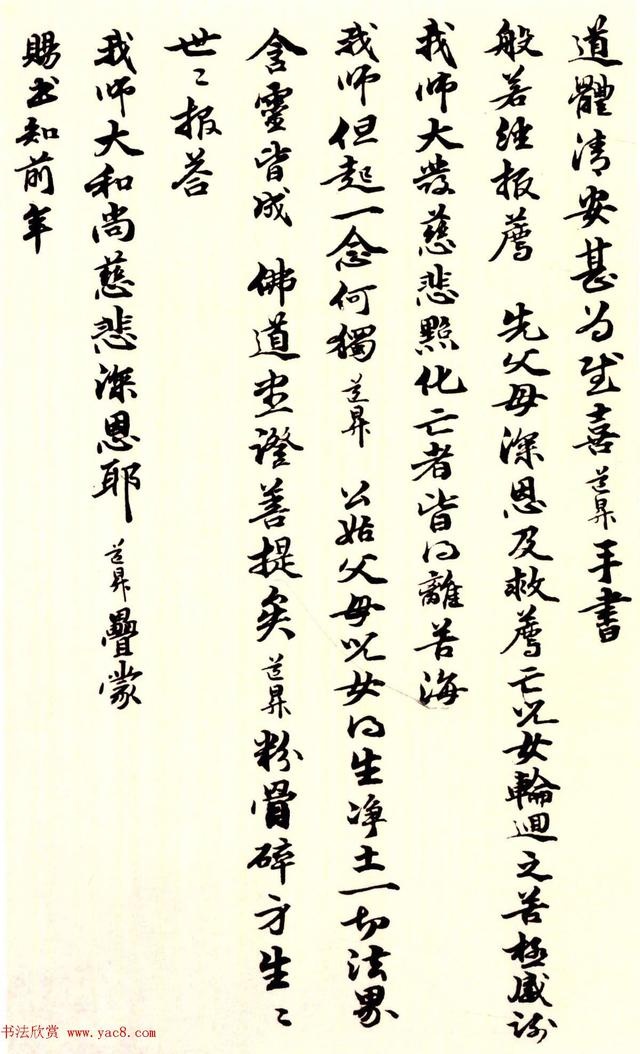 道體清安甚為感喜道昇手書
般若經報薦 先父母深恩及救薦亡兒女輪迴之苦極感謝
我師大發慈悲點化亡者皆得離苦海
我師但起一念何獨道昇 公姑父母兒女得生淨土一切法界
含靈皆成 佛道證菩提矣道昇粉骨碎身生〻
世〻報答
我師大和尚慈悲深恩耶道昇疊蒙
賜書知前年
书法欣赏 www.yac8.com